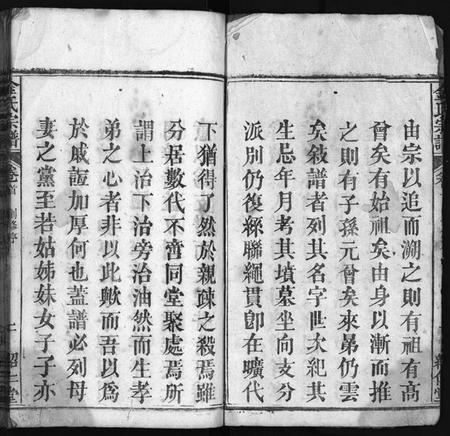 由宗以追而溯之則有祖有高
曾矣有始祖矣由身以漸而推
之則有子孫元曾矣來昴仍雲
矣敍譜者列其名字世次紀其
生忌年月考其墳墓坐向支分
派別仍復絲聯繩貫卽在曠代
下猶得了然於親疎之殺焉雖
分居數代不啻同堂聚處焉所
謂上治下治旁治油然而生孝
弟之心者非以此歟而吾以爲
於戚誼加厚何也蓋譜必列母
妻之黨至若姑姊妹女子子亦
氏宗譜
卷首